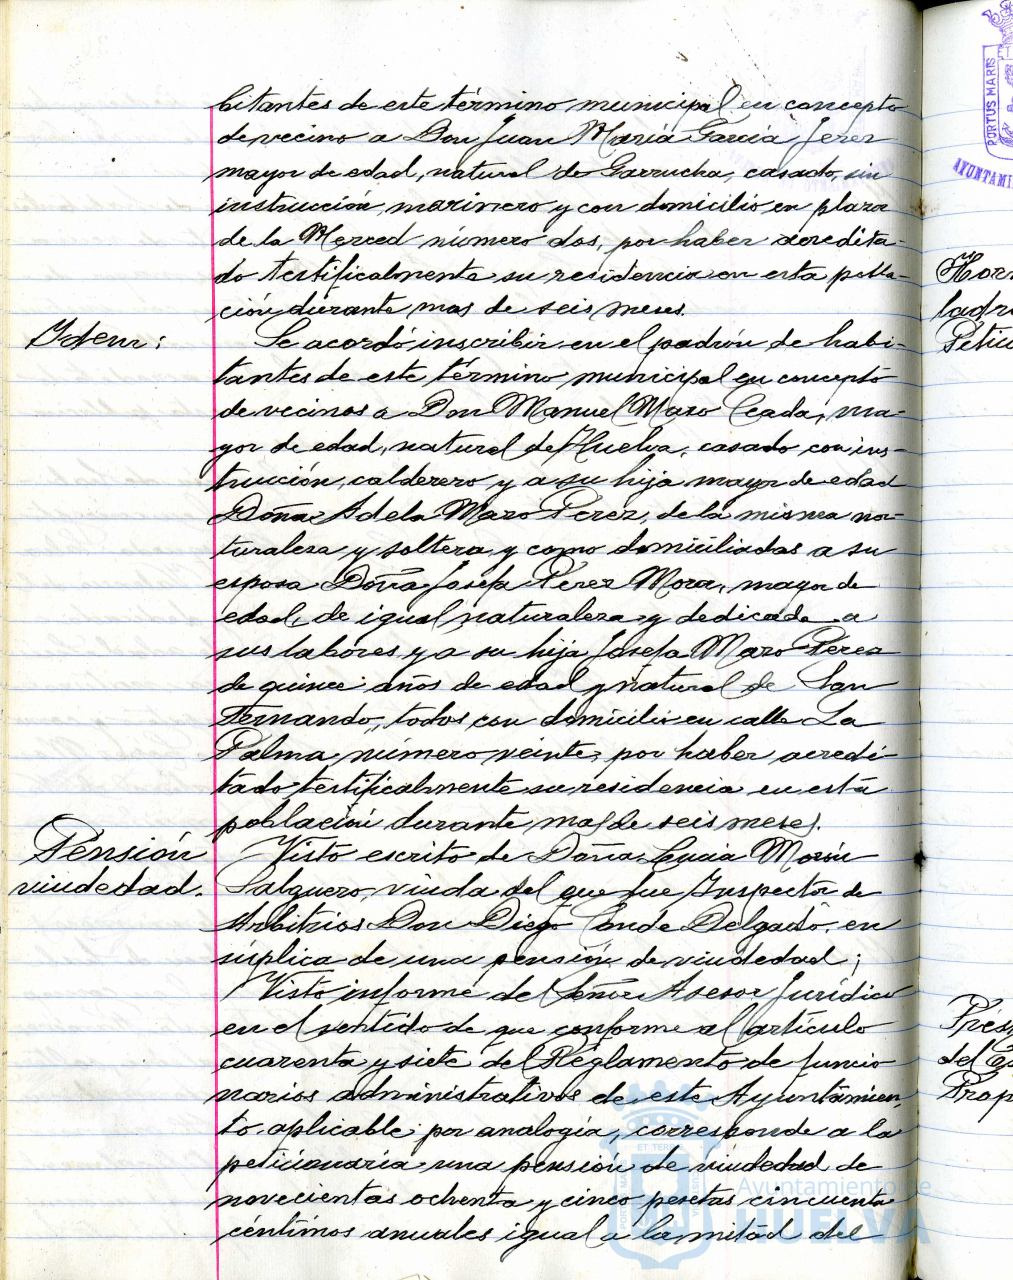 bitantes de este término municipal en concepto
de vecino a Don Juan María García Jerez
mayor de edad, natural de Garrucha, casado, sin
instrucción, marinero y con domicilio en plaza
de la Merced número dos, por haber acredita-
do testificalmente su residencia en esta pobla-
ción durante mas de seis meses.
Idem:
Se acordó inscribir en el padrón de habi-
tantes de este término municipal en concepto
de vecinos a Don Manuel Mazo Ceada, ma-
yor de edad, natural de Huelva, casado con ins-
trucción, calderero y a su hija mayor de edad
Doña Adela Mazo Perez, de la misma na-
turaleza y soltera, y como domiciliadas a su
esposa Doña Josefa Pérez Mora, mayor de
edad, de igual naturaleza y dedicada a
sus labores y a su hija Josefa Mazo Pérez
de quince años de edad y natural de San
Fernando, todos con domicilio en calle La
Palma número veinte, por haber acredi-
tado testificalmente su residencia en esta
población durante mas de seis meses.
Pensión
viudedad.
Visto escrito de Doña Lucia Morón
Salguero, viuda del que fue Inspector de
Arbitrios Don Diego Conde Delgado, en
súplica de una pensión de viudedad;
Visto informe del Señor Asesor Jurídico
en el sentido de que conforme al artículo
cuarenta y siete del Reglamento de funcio
narios administrativos de este Ayuntamien
to, aplicable por analogía, corresponde a la
peticionaria una pensión de viudedad de
novecientas ochenta y cinco pesetas cincuenta
céntimos anuales igual a la mitad del
PORTUS MARIS
AYUNTAMI
ladr
Petic
Prop
Ayuntamiento de
HUELVA